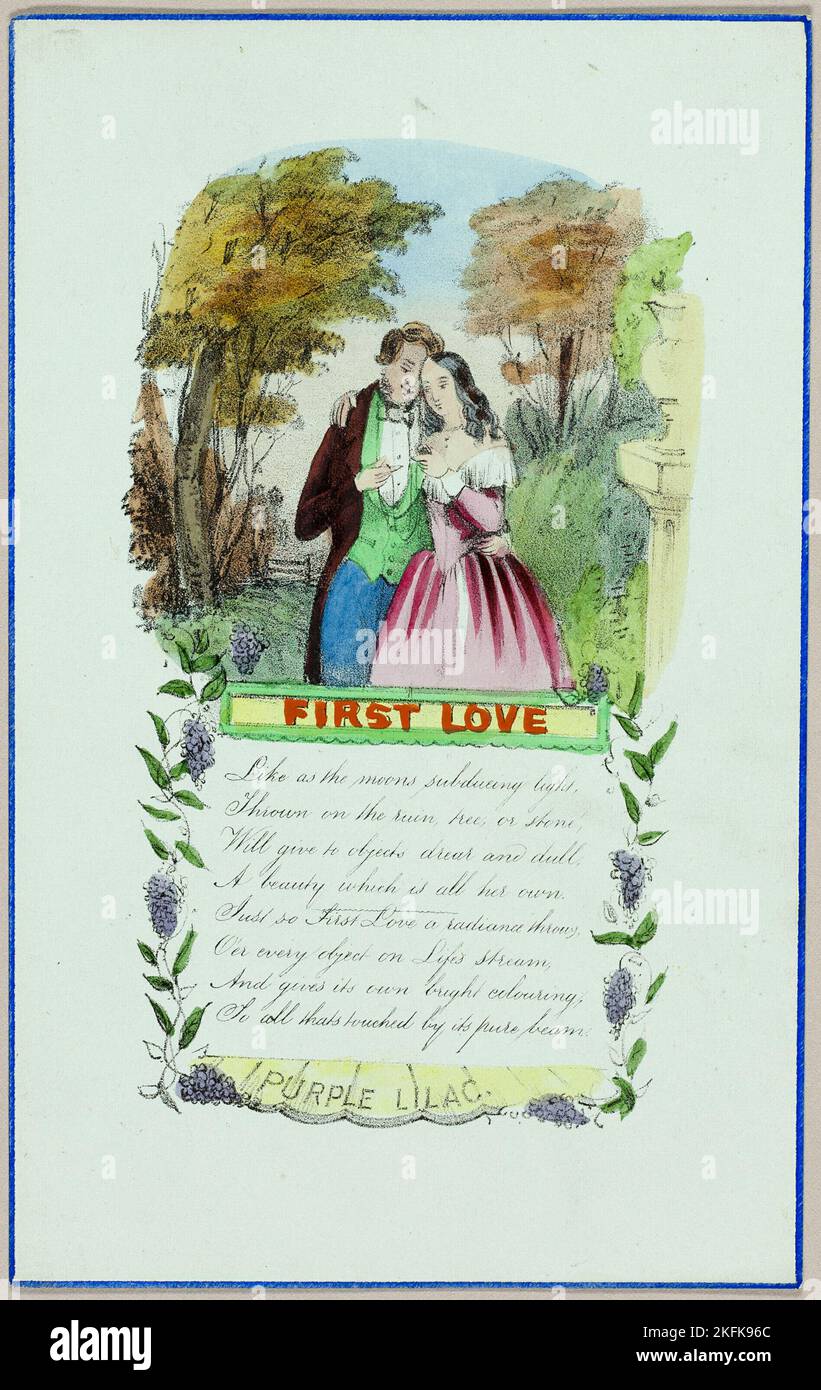 alamy
FIRST LOVE
Like as the moons subducing light,
Thrown on the ruin, tree, or stone,
Will give to objects drear and dull,
A beauty which is all her own.
Just so First Love a radiance throws,
O'er every object on Life's stream,
And gives its own bright colouring;
To all thats touched by its pure beam.
PURPLE LILAC.
alamy
alamy
Image ID: 2KFK96C
www.alamy.com